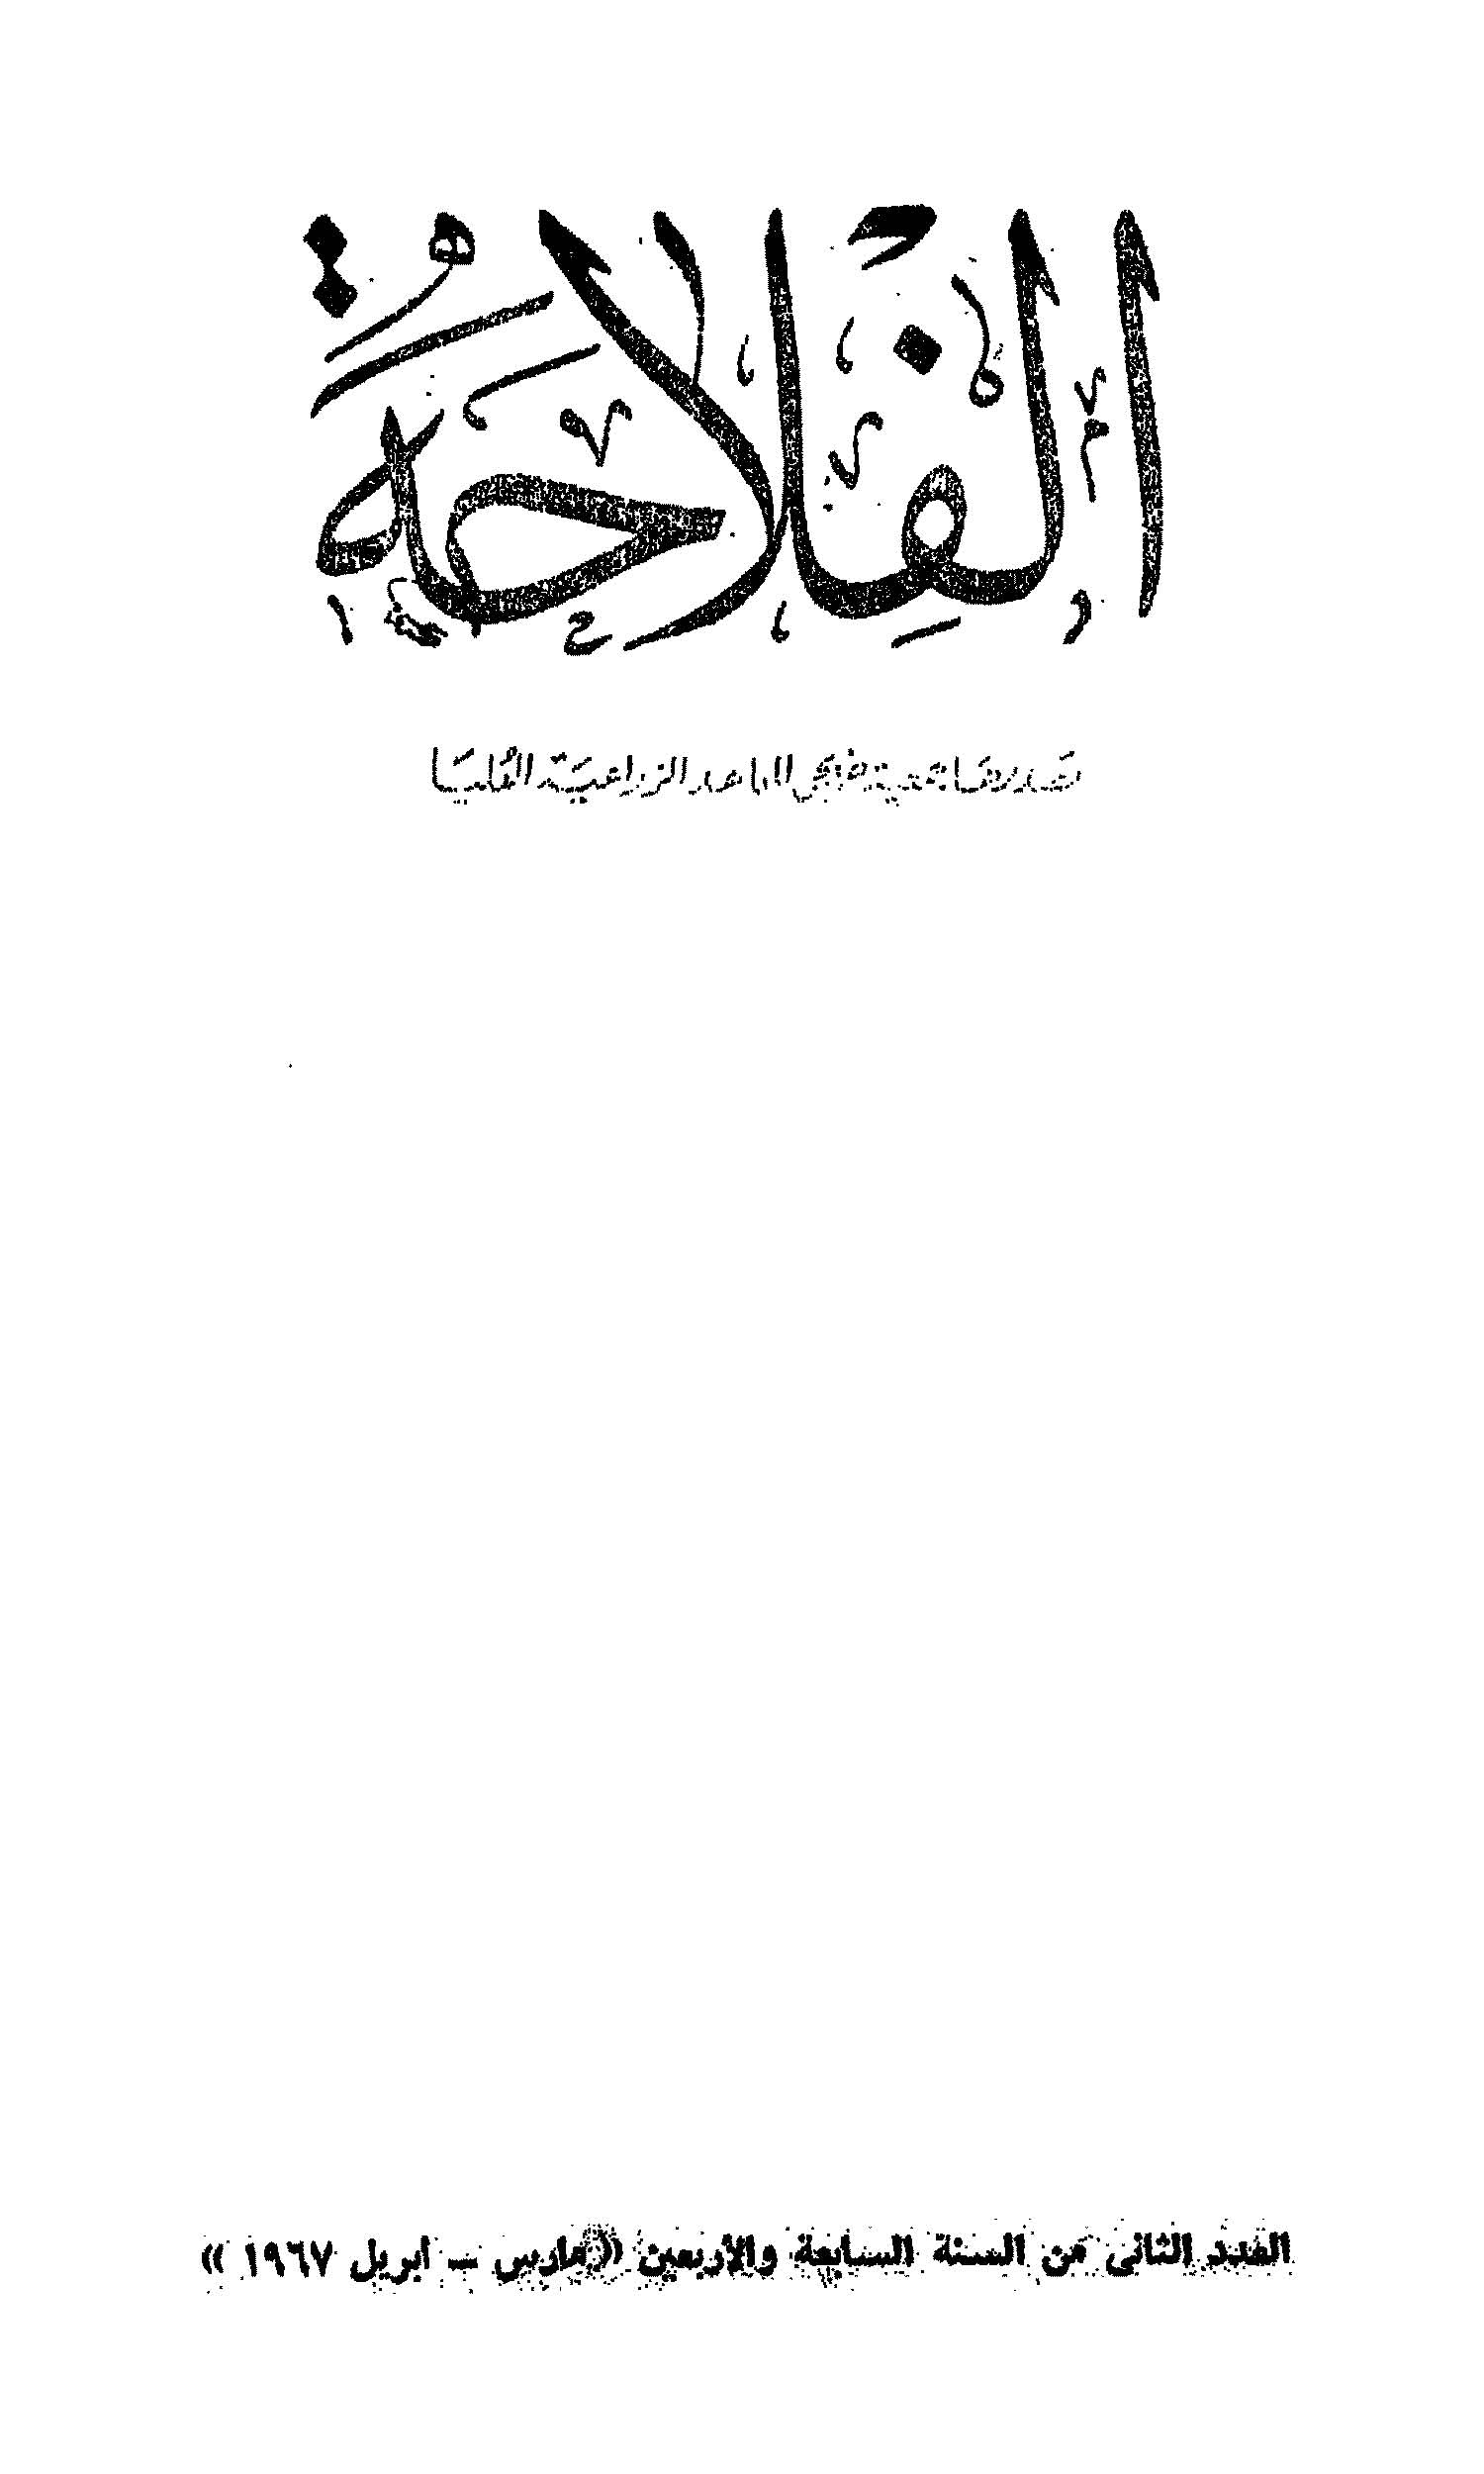 الفِلَاحَةُ
تصدرها جمعية خريجي المعاهد الزراعية العُليَا
العدد الثانى من السنة السابعة والأربعين « مارس — ابريل ١٩٦٧ »